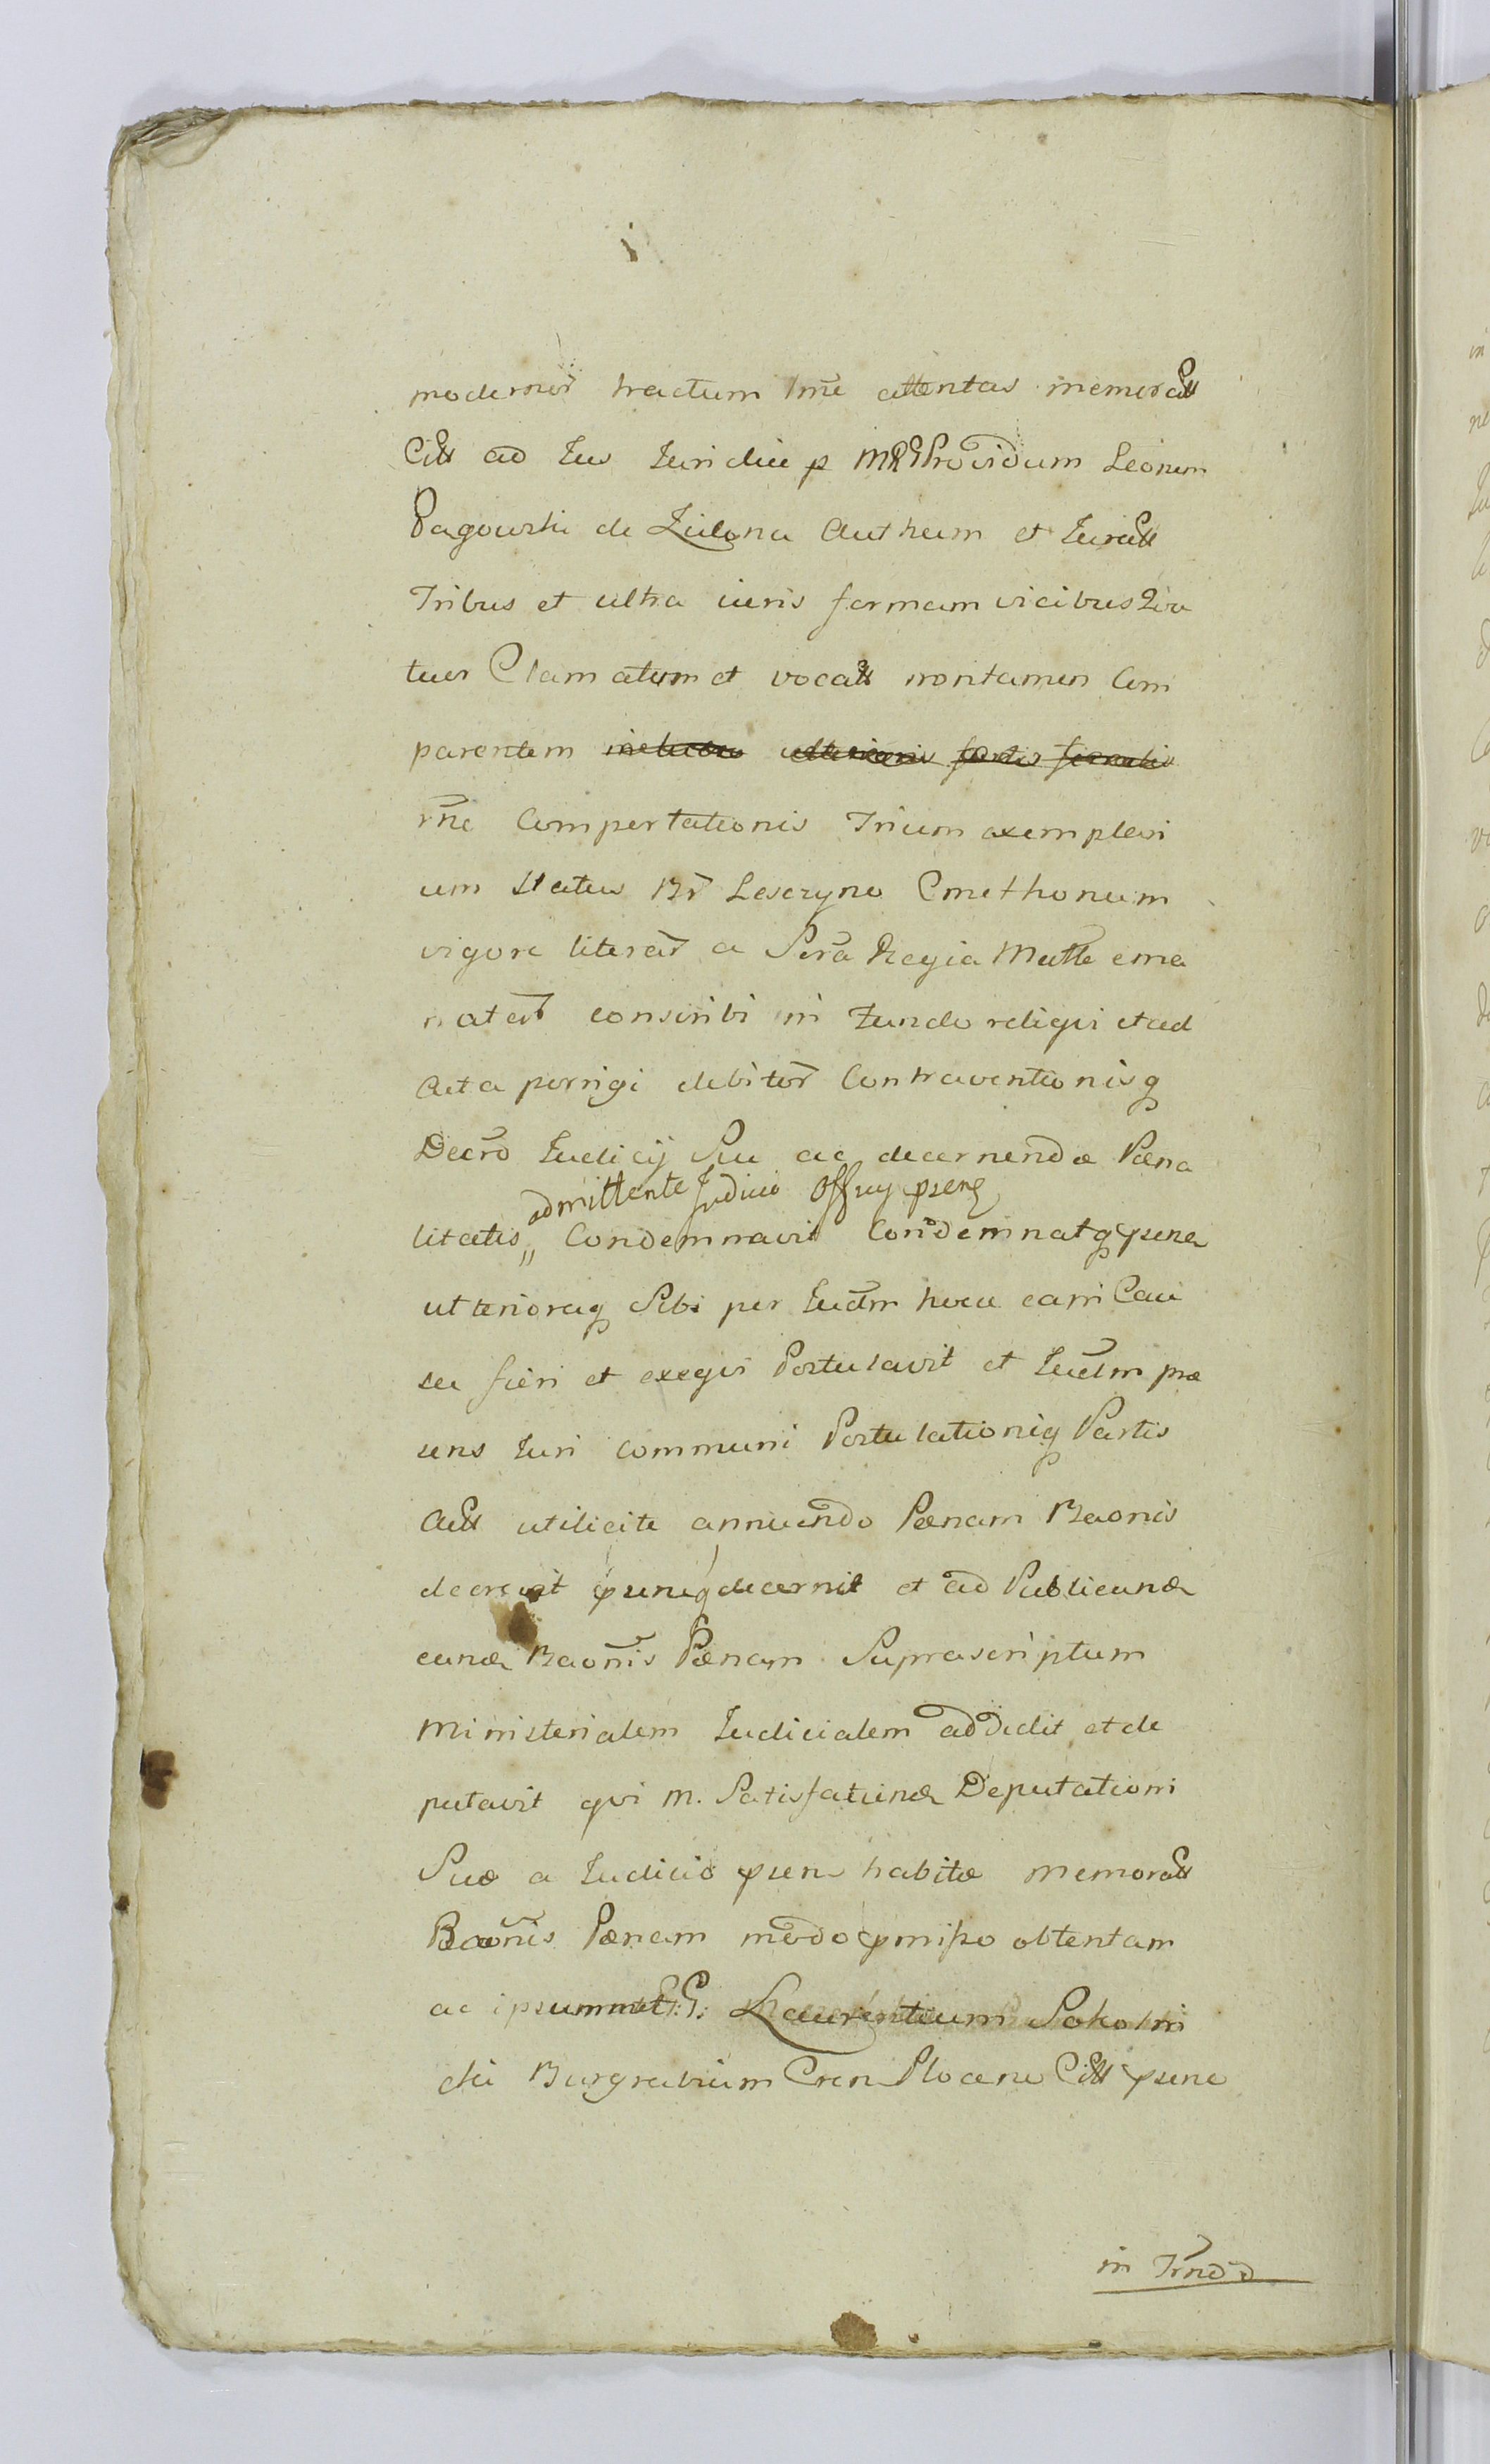 modernor tractum lme attentas memorall
Citt ad Jus Juridice p MRG Providum Leonem
Pagowski de Zielona Authum et Jurall
Tribus et ultra iuris formam vicibus Qua
tuor Clamatum et vocatt nontamen Com
parentem
rne Comportationis Trium exemplari
um Status Br Leseryno Cmethonum
vigore literar a Sera Regia Matte ema
natar conscribi in fundo religi et ad
Acta porrigi debitor Contraventionisq
Decro Judicij Sui ac decernendæ Pæna
admittente Judicio Officij psens
litatis Condemnavit Condemnatq psens
ulterioraq Sibi per Judm hocce earri Cau
sa fieri et exegi Postulavit et Judm præ
sens Juri communi Postulationiq Partis
Actt utilicite annuendo Pænam Baonis
decrevit psensq decernit et ad Publicand
eand Baonis Pænam Suprascriptum
Ministerialem Judicialem addidit et de
putavit qui m. Satisfaciend Deputationi
Suæ a Judicio psen habitæ memorall
Baonis Pænam modo pmisso obtentam
ac ipsummet G. Laurentium Sokolni
cki Burgrabium Cren Plocen Citt psens
in Trnd